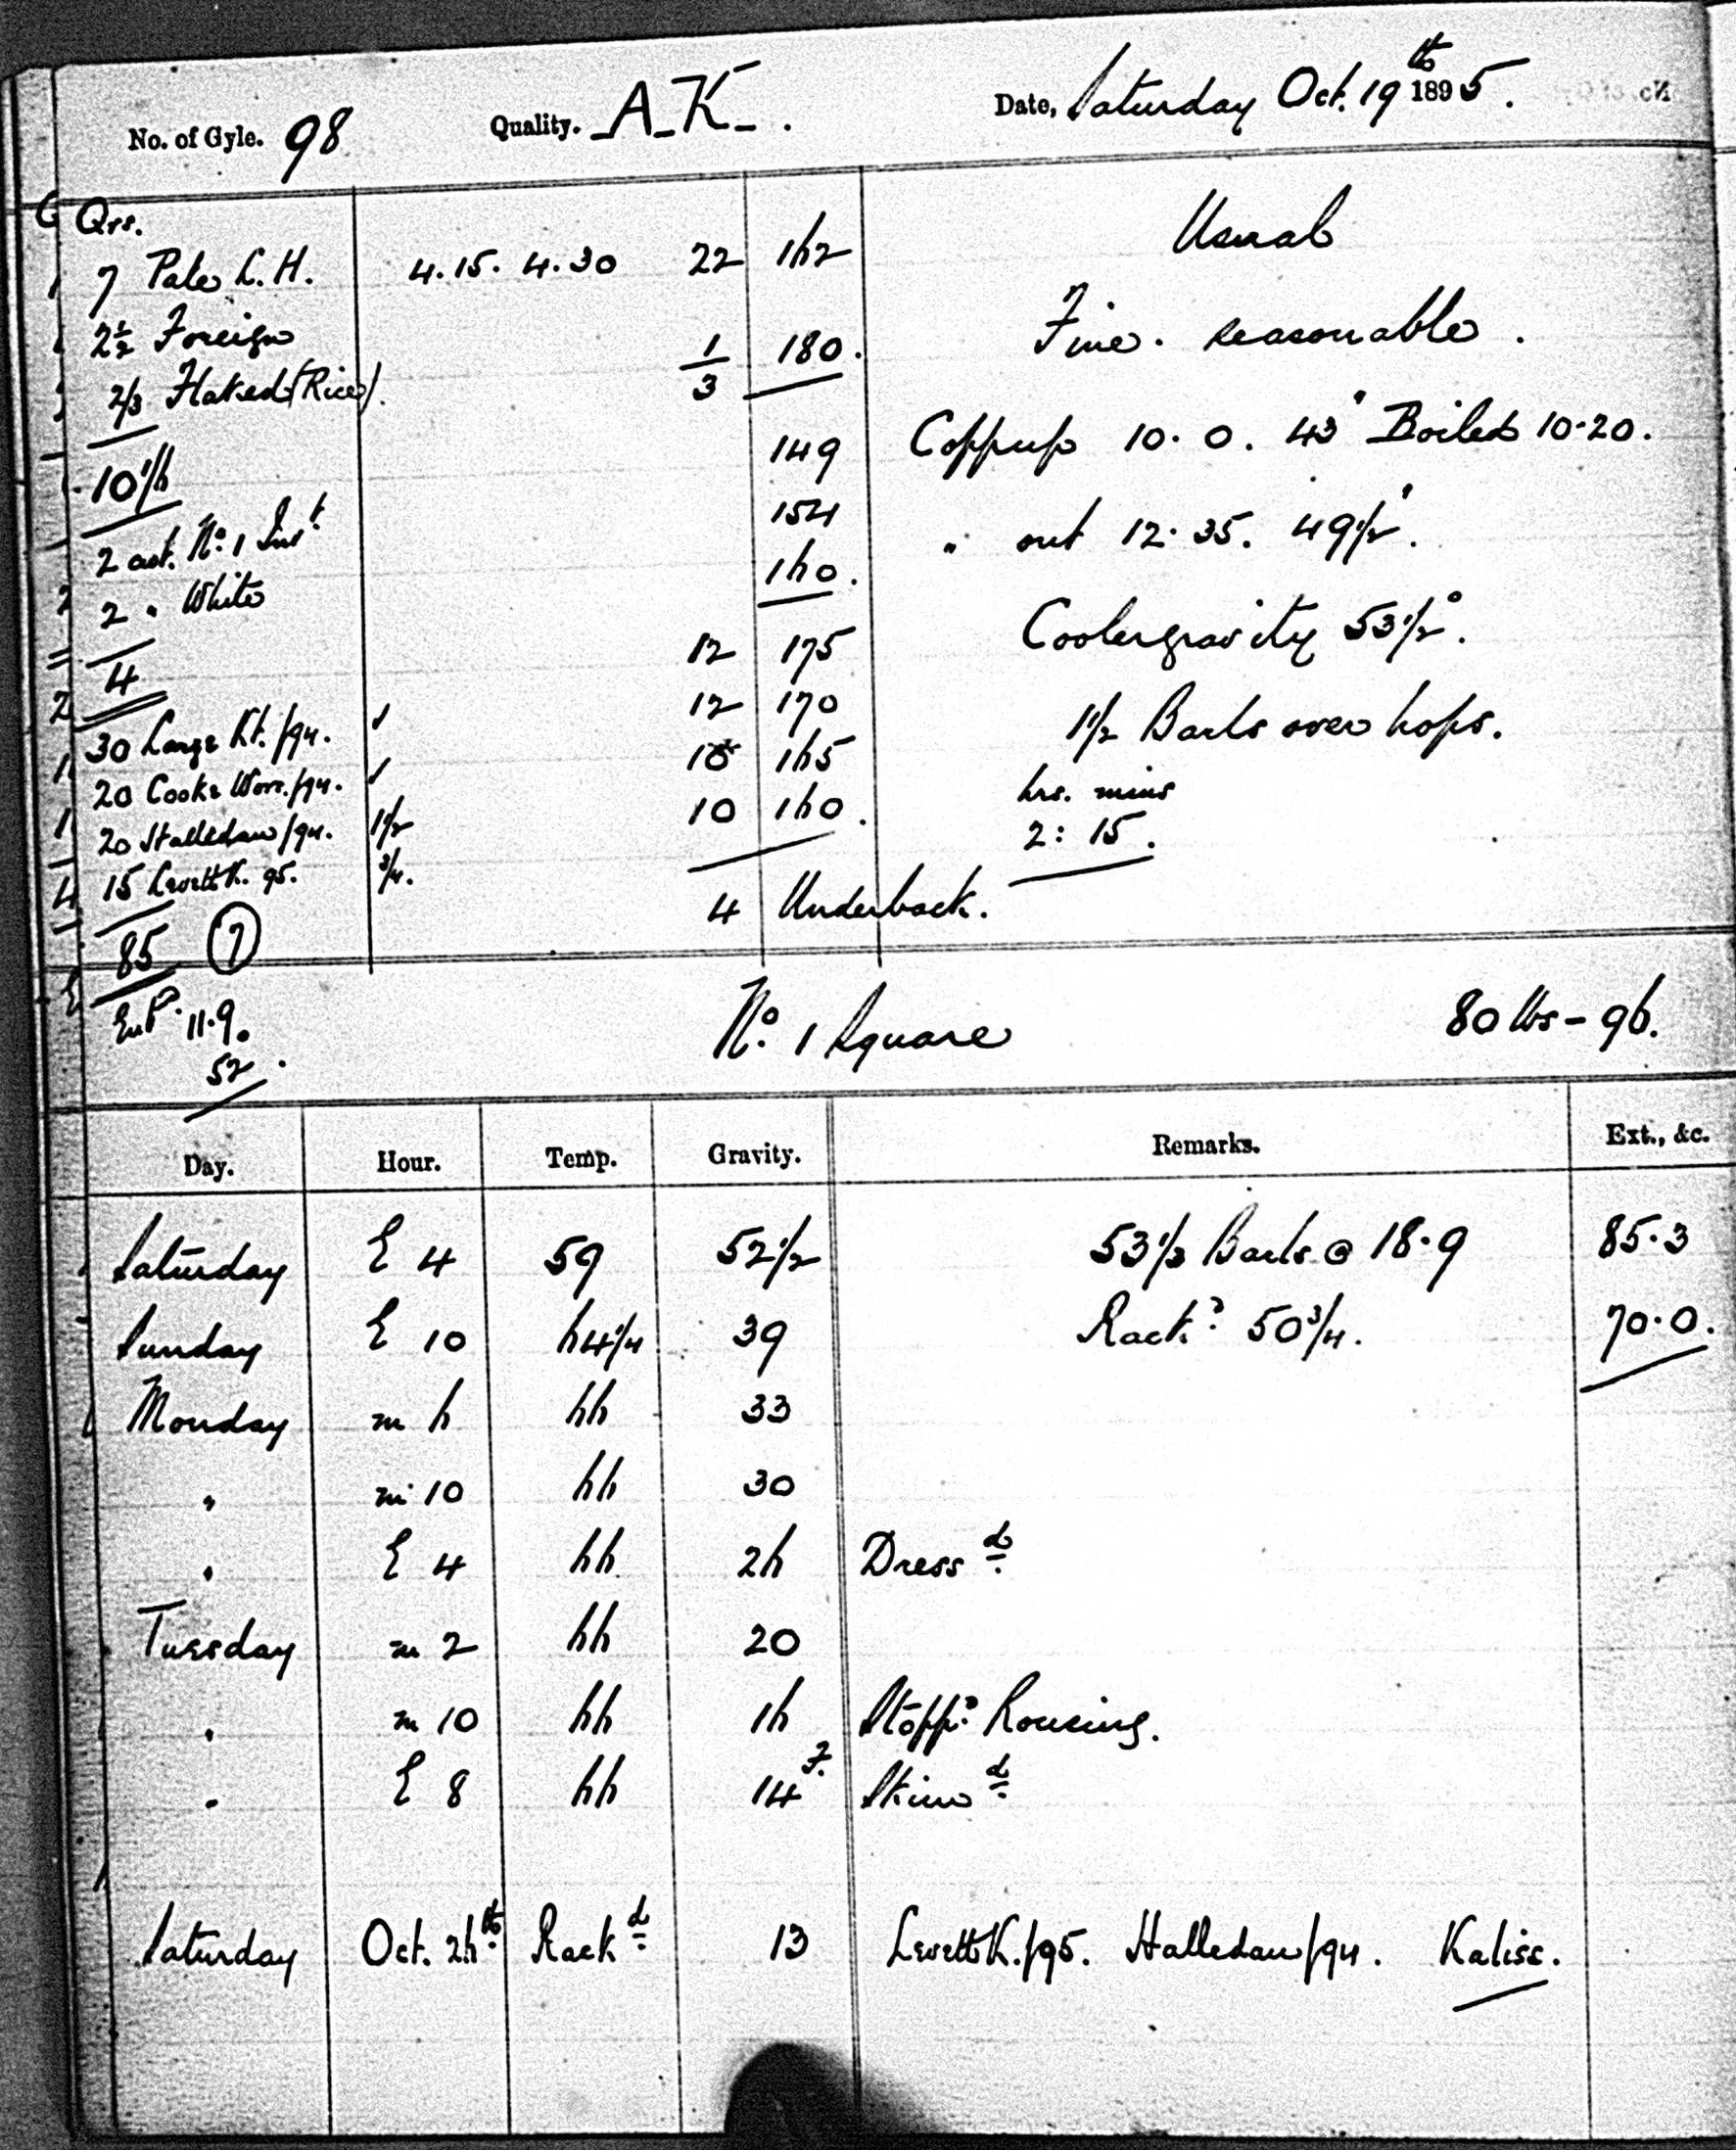 No. of Gyle. 98 Quality. A-K-. Date, Saturday Oct. 19th 1895.
Qrs.
7 Pale L.H. 4.15. 4.30 22 162 Usual
2½ Foreign 1/3 180. Fine. reasonable.
2/3 Flaked (Rice).
10 1/6 149 Coppup 10.0. 43' Boiled 10.20.
2 cwt. No. 1 Invt. 154 " out 12.35. 49½'.
2 " White 160. Coolergravity 53½°.
4 12 175
30 Large Kt./94. ✓ 12 170 1½ Barls over hops.
20 Cooke Worc./94. ✓ 10 165 hrs. mins
20 Halledau/94. 1½ 10 160. 2: 15.
15 Levett K. 95. ¾.
85 (7) 4 Underback.
11.9. No. 1 Square 80 lbs - 96.
52.
Day. Hour. Temp. Gravity. Remarks. Ext., &c.
Saturday E 4 59 52½ 53⅓ Barls @ 18.9 85.3
Sunday E 10 64¼ 39 Rackd. 50¾. 70.0.
Monday m 6 66 33
" m 10 66 30
" E 4 66 26 Dressd.
Tuesday m 2 66 20
" m 10 66 16 Stoppd. Rousing.
" E 8 66 14 F. Skimd.
Saturday Oct. 26th. Rackd. 13 Levett K./95. Halledau/94. Kalisc.